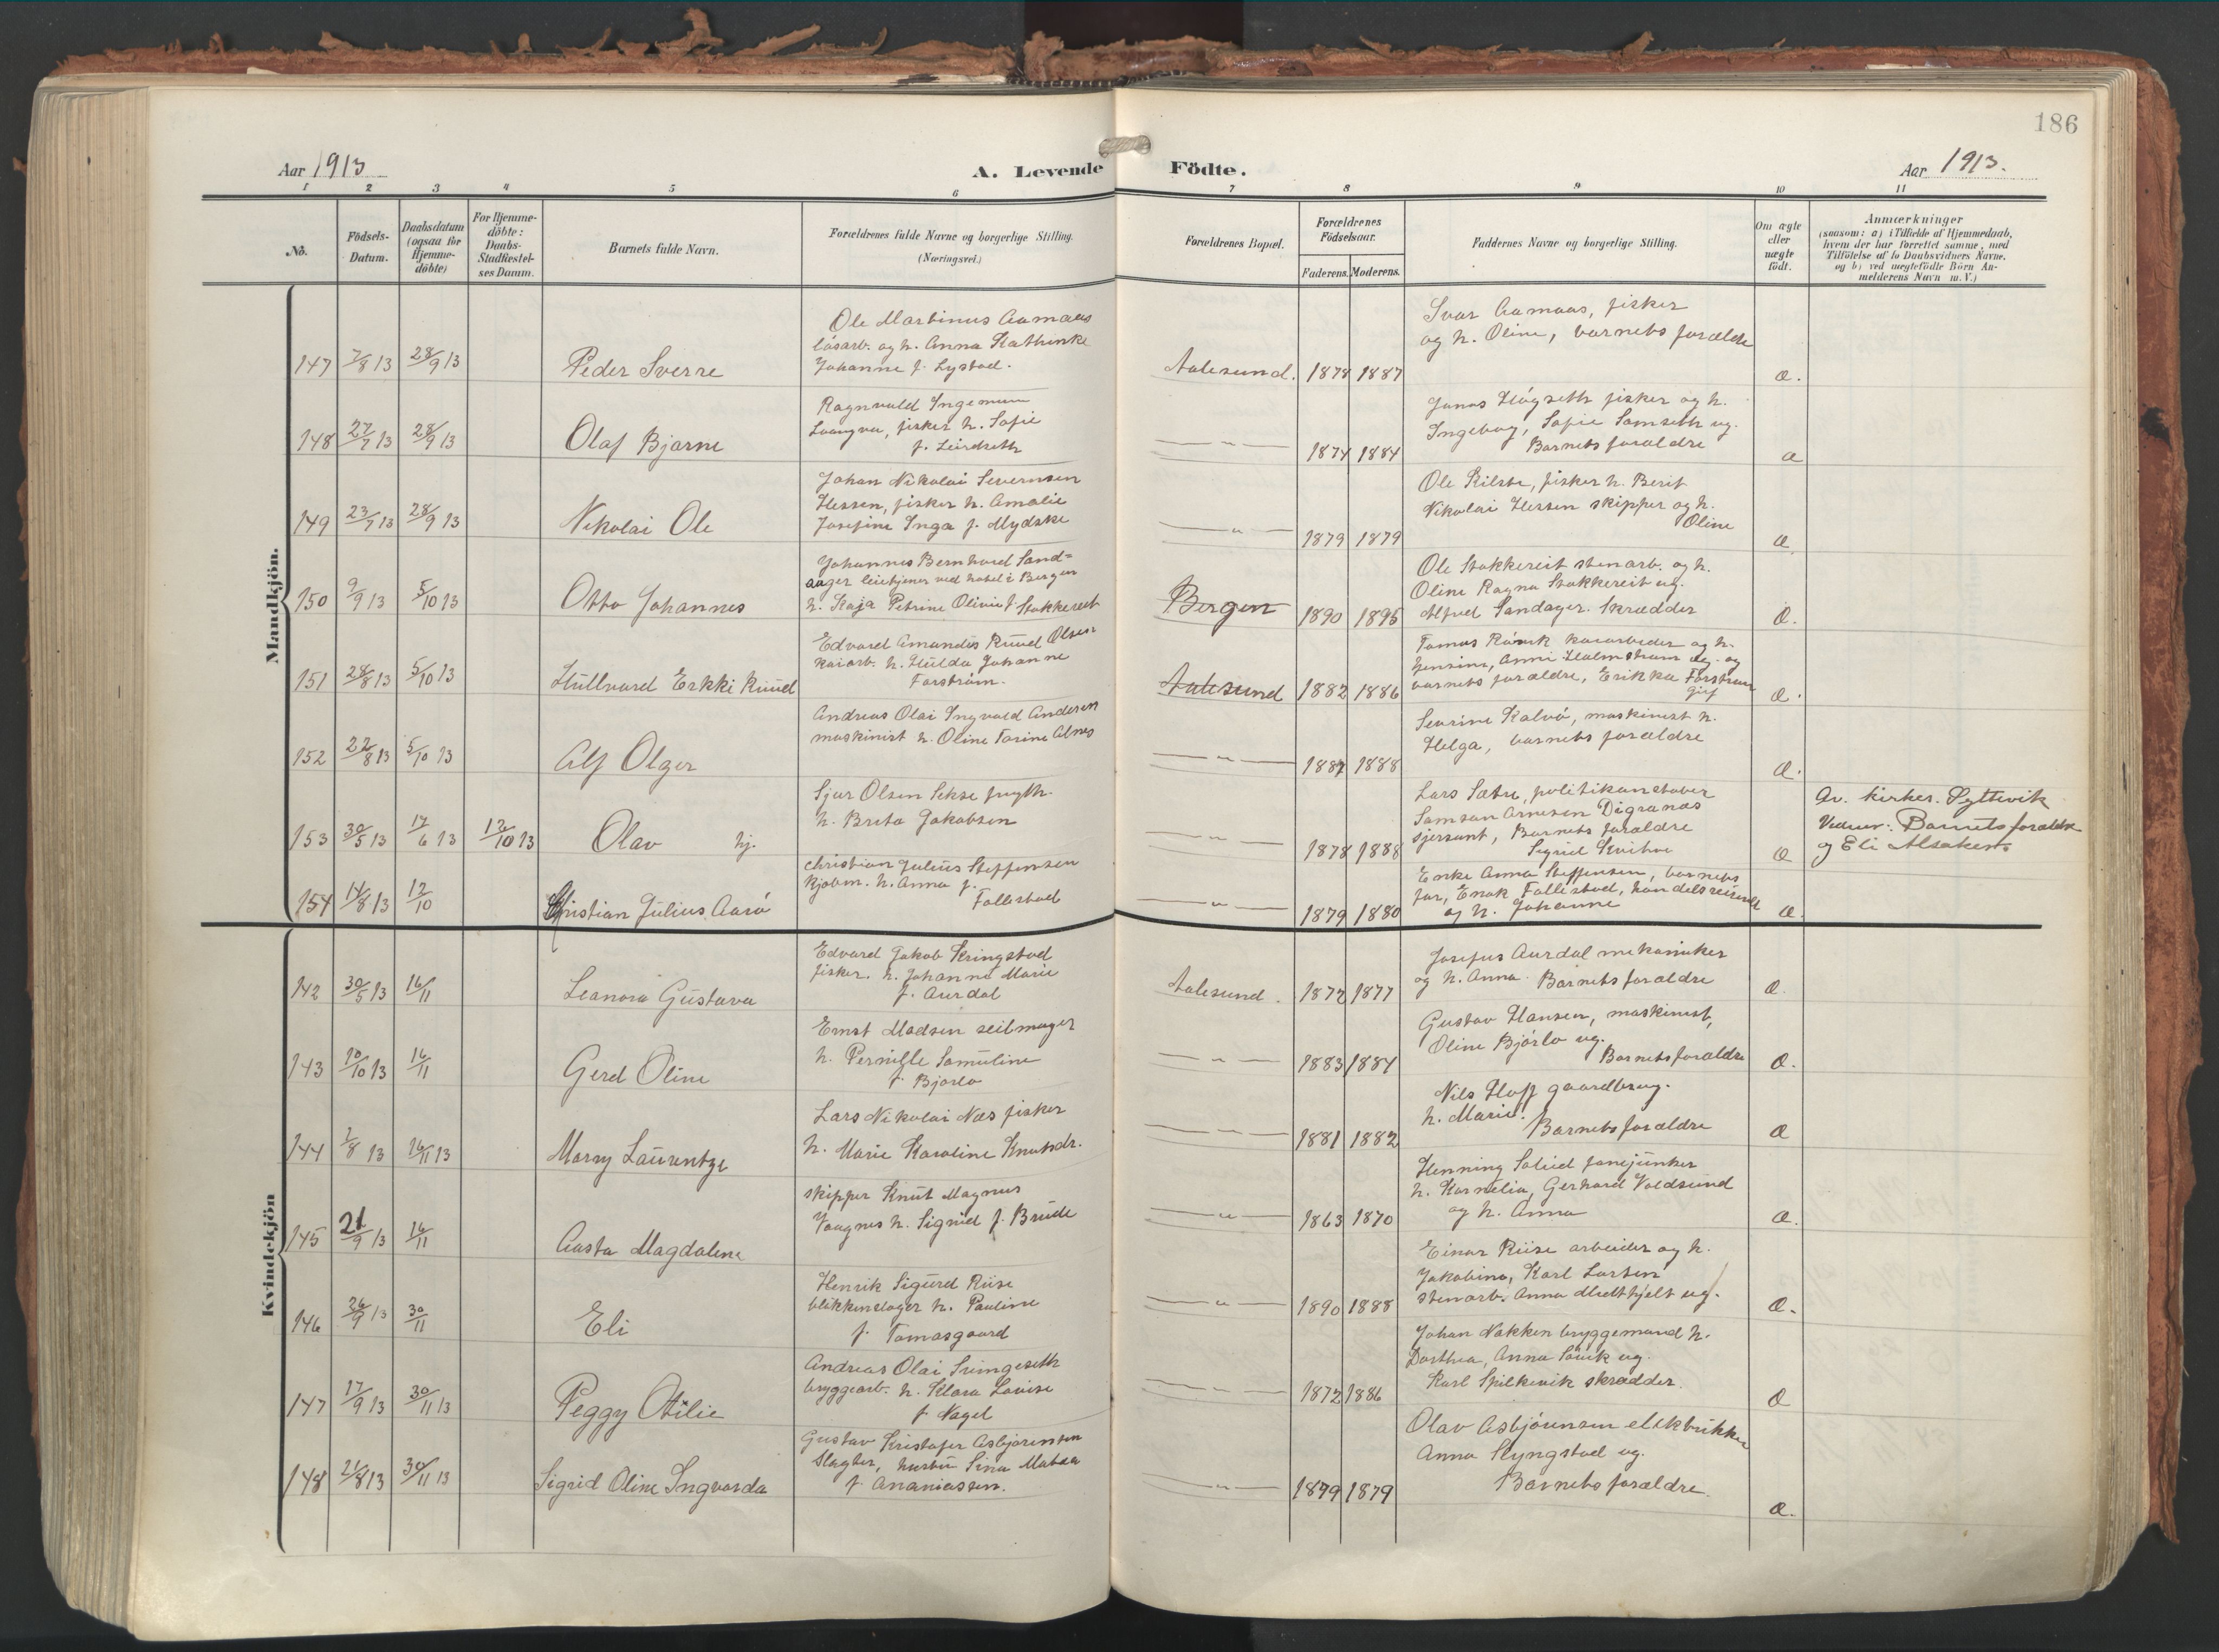 186
Aar 1913
A. Levende Födte.
Aar 1913.
1 2 3 4 5 6 7 8 9 10 11
No.
Födsels-Datum.
Daabsdatum (ogsaa for Hjemme-döbte)
For Hjemme-döbte: Daabs-Stadfæstel-ses Datum.
Barnets fulde Navn.
Forældrenes fulde Navne og borgerlige Stilling.
(Næringsvei.)
Forældrenes Bopæl.
Forældrenes Födselsaar.
Faderens. Moderens.
Faddernes Navne og borgerlige Stilling.
Om ægte eller uægte födt.
Anmærkninger
(saasom: a) i Tilfælde af Hjemmedaab,
hvem der har forrettet samme, med
Tilföielse af to Daabsvidners Navne,
og b) ved uægtefödte Börn An-
melderens Navn m. V.)
Mandkjön.
147 7/8 13 28/9 13 Peder Sverre
Ole Martinus Aamaas
lösarb. og h. Anna Kathinke
Johanne f. Lystad.
Aalesund. 1878 1887
Ivar Aamaas, fisker
og h. Oline, barnets forældre
Æ.
148 27/7 13 28/9 13 Olaf Bjarne
Ragnvald Ingemun
fisker h. Sofie
f.
— " — 1874 1884
Jonas Högseth fisker og h.
Ingebog, Sofie Samseth ug.
Barnets forældre
Æ
149 23/7 13 28/9 13 Nikolai Ole
Johan Nikolai Severinsen
Hessen, fisker h. Amalie
Josefine Inga f. Mydske
— " — 1879 1879
Ole Rilste, fisker h. Berit
Nikolai Hessen skipper og h.
Oline
Æ.
150 9/9 13 5/10 13 Otto Johannes
Johannes Bernhard Sand=
ager leietjener ved hotel i Bergen
h. Kaja Petrine Olivia f Stokkereit
Bergen 1890 1895
Ole Stokkereit stenarb. og h.
Oline Ragna Stokkereit ug.
Alfred Sandager. Skrædder
Æ.
151 28/8 13 5/10 13 Hullvard Erkki Ruud
Edvard Amandus Ruud Olsen
kaiarb. h. Hulda Johanne
Forström.
Aalesund 1882 1886
Tomas kaiarbeider og h.
Jensine, Anni Holmstrøm ug. og
barnets forældre, Erikka Forstrøm
gift
Æ.
152 22/8 13 5/10 13 Alf Olger
Andreas Olai Ingvald Andersen
maskinist h. Oline Tarine Alnes
— " — 1887 1888
Severine Kalvö, maskinist h.
Helga, barnets forældre
Æ.
153 30/5 13 17/6 13 12/10 13 Olav hj.
Sjur Olsen Sekse
h. Brita Jakobsen
— " — 1878 1888
Lars Sætre, politikonstabel
Samson Arnesen Digranæs
sjersant, Barnets forældre
Sigrid
Æ
Av. kirkes. Syttevik
Vidner: Barnets forældre
og Eli Alsaker
154 14/8 13 12/10 Christian Julius Aarö
Christian Julius Steffensen
kjøbm. h. Anna f.
Follestad
— " — 1879 1880
Enke Anna Steffensen, barnets
far, Enok Follestad, handelsreisende
og h. Johanne
Æ.
Kvindekjön
142 30/5 13 16/11 Leanora Gustava
Edvard Jakob Kringstad
fisker. h. Johanna Marie
f. Aurdal
Aalesund. 1872 1877
Josefus Aurdal mekaniker
og h. Anna. Barnets forældre
Æ.
143 10/10 13 16/11 Gerd Oline
Ernst Madsen seilmager
h. Pernille Samuline
f. Bjorlo
— " — 1883 1884
Gustav Hansen, maskinist,
Oline Bjørlo ug.
Barnets forældre
Æ.
144 1/8 13 16/11 13 Marry Lauentze
Lars Nikolai Næs fisker
h. Marie Karoline Knutsdr.
— " — 1881 1882
Nils Hoff gaardbrug.
h. Marie. Barnets forældre
Æ
145 21/9 13 16/11 Aasta Magdalene
skipper Knut Magnus
Vaagnes h. Sigrid f. Brude
— " — 1863 1870
Henning fanejunker
h. Kornelia, Gerhard Voldsund
og h. Anna
Æ.
146 26/9 13 30/11 Eli
Henrik Sigurd Riise
blikkenslager h. Pauline
f. Tomasgaard
— " — 1890 1888
Einar Riise arbeider og h.
Jakobina, Karl Larsen
stenarb. Anna Midthjelt ug.
Æ.
147 17/9 13 30/11 13 Peggy Otilie
Andreas Olai
bryggearb. h. Klara Lovise
f Nagel
— " — 1872 1886
Johan Nakken bryggemand h.
Dorthea, Anna ug.
Karl Spilkevik skrædder.
Æ
148 21/8 13 30/11 13 Sigrid Oline Ingvarda
Gustav Kristofer Asbjørensen
Slagter, hustru Sina Matea
f. Ananiassen.
— " — 1879 1879
Olav Asbjörensen elektrikker
Anna Slyngstad ug.
Barnets forældre.
Æ.